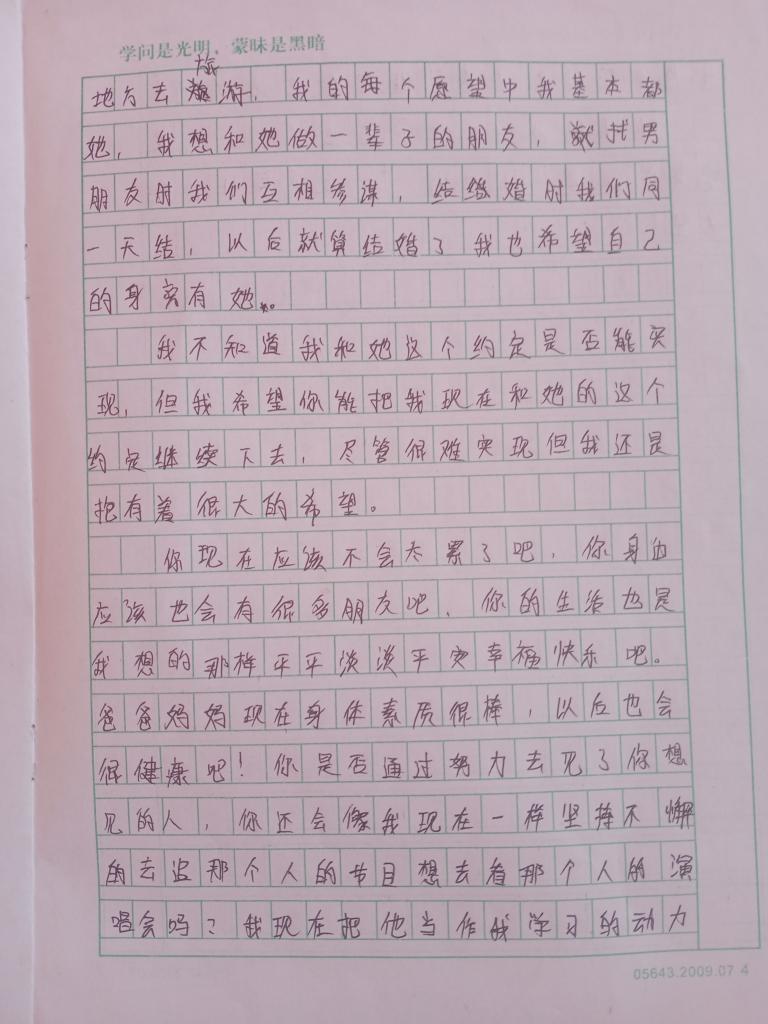 学问是光明,蒙昧是黑暗
地方去旅游,我的每个愿望中我基本都
她,我想和她做一辈子的朋友,就找男
朋友时我们互相参谋,结婚时我们同
一天结,以后就算结婚了我也希望自己
的身实有她。
我不知道我和她这个约定是否能实
现,但我希望你能把我现在和她的这个
约定继续下去,尽管很难实现但我还是
抱有着很大的希望。
你现在应该不会太累了吧,你身边
应该也会有很多朋友吧,你的生活也是
我想的那样平平淡淡平安幸福快乐吧。
爸爸妈妈现在身体素质很棒,以后也会
很健康吧!你是否通过努力去见了你想
见的人,你还会像我现在一样坚持不懈
的去追那个人的节目想去看那个人的演
唱会吗?我现在把他当作我学习的动力
05643.2009.07 4